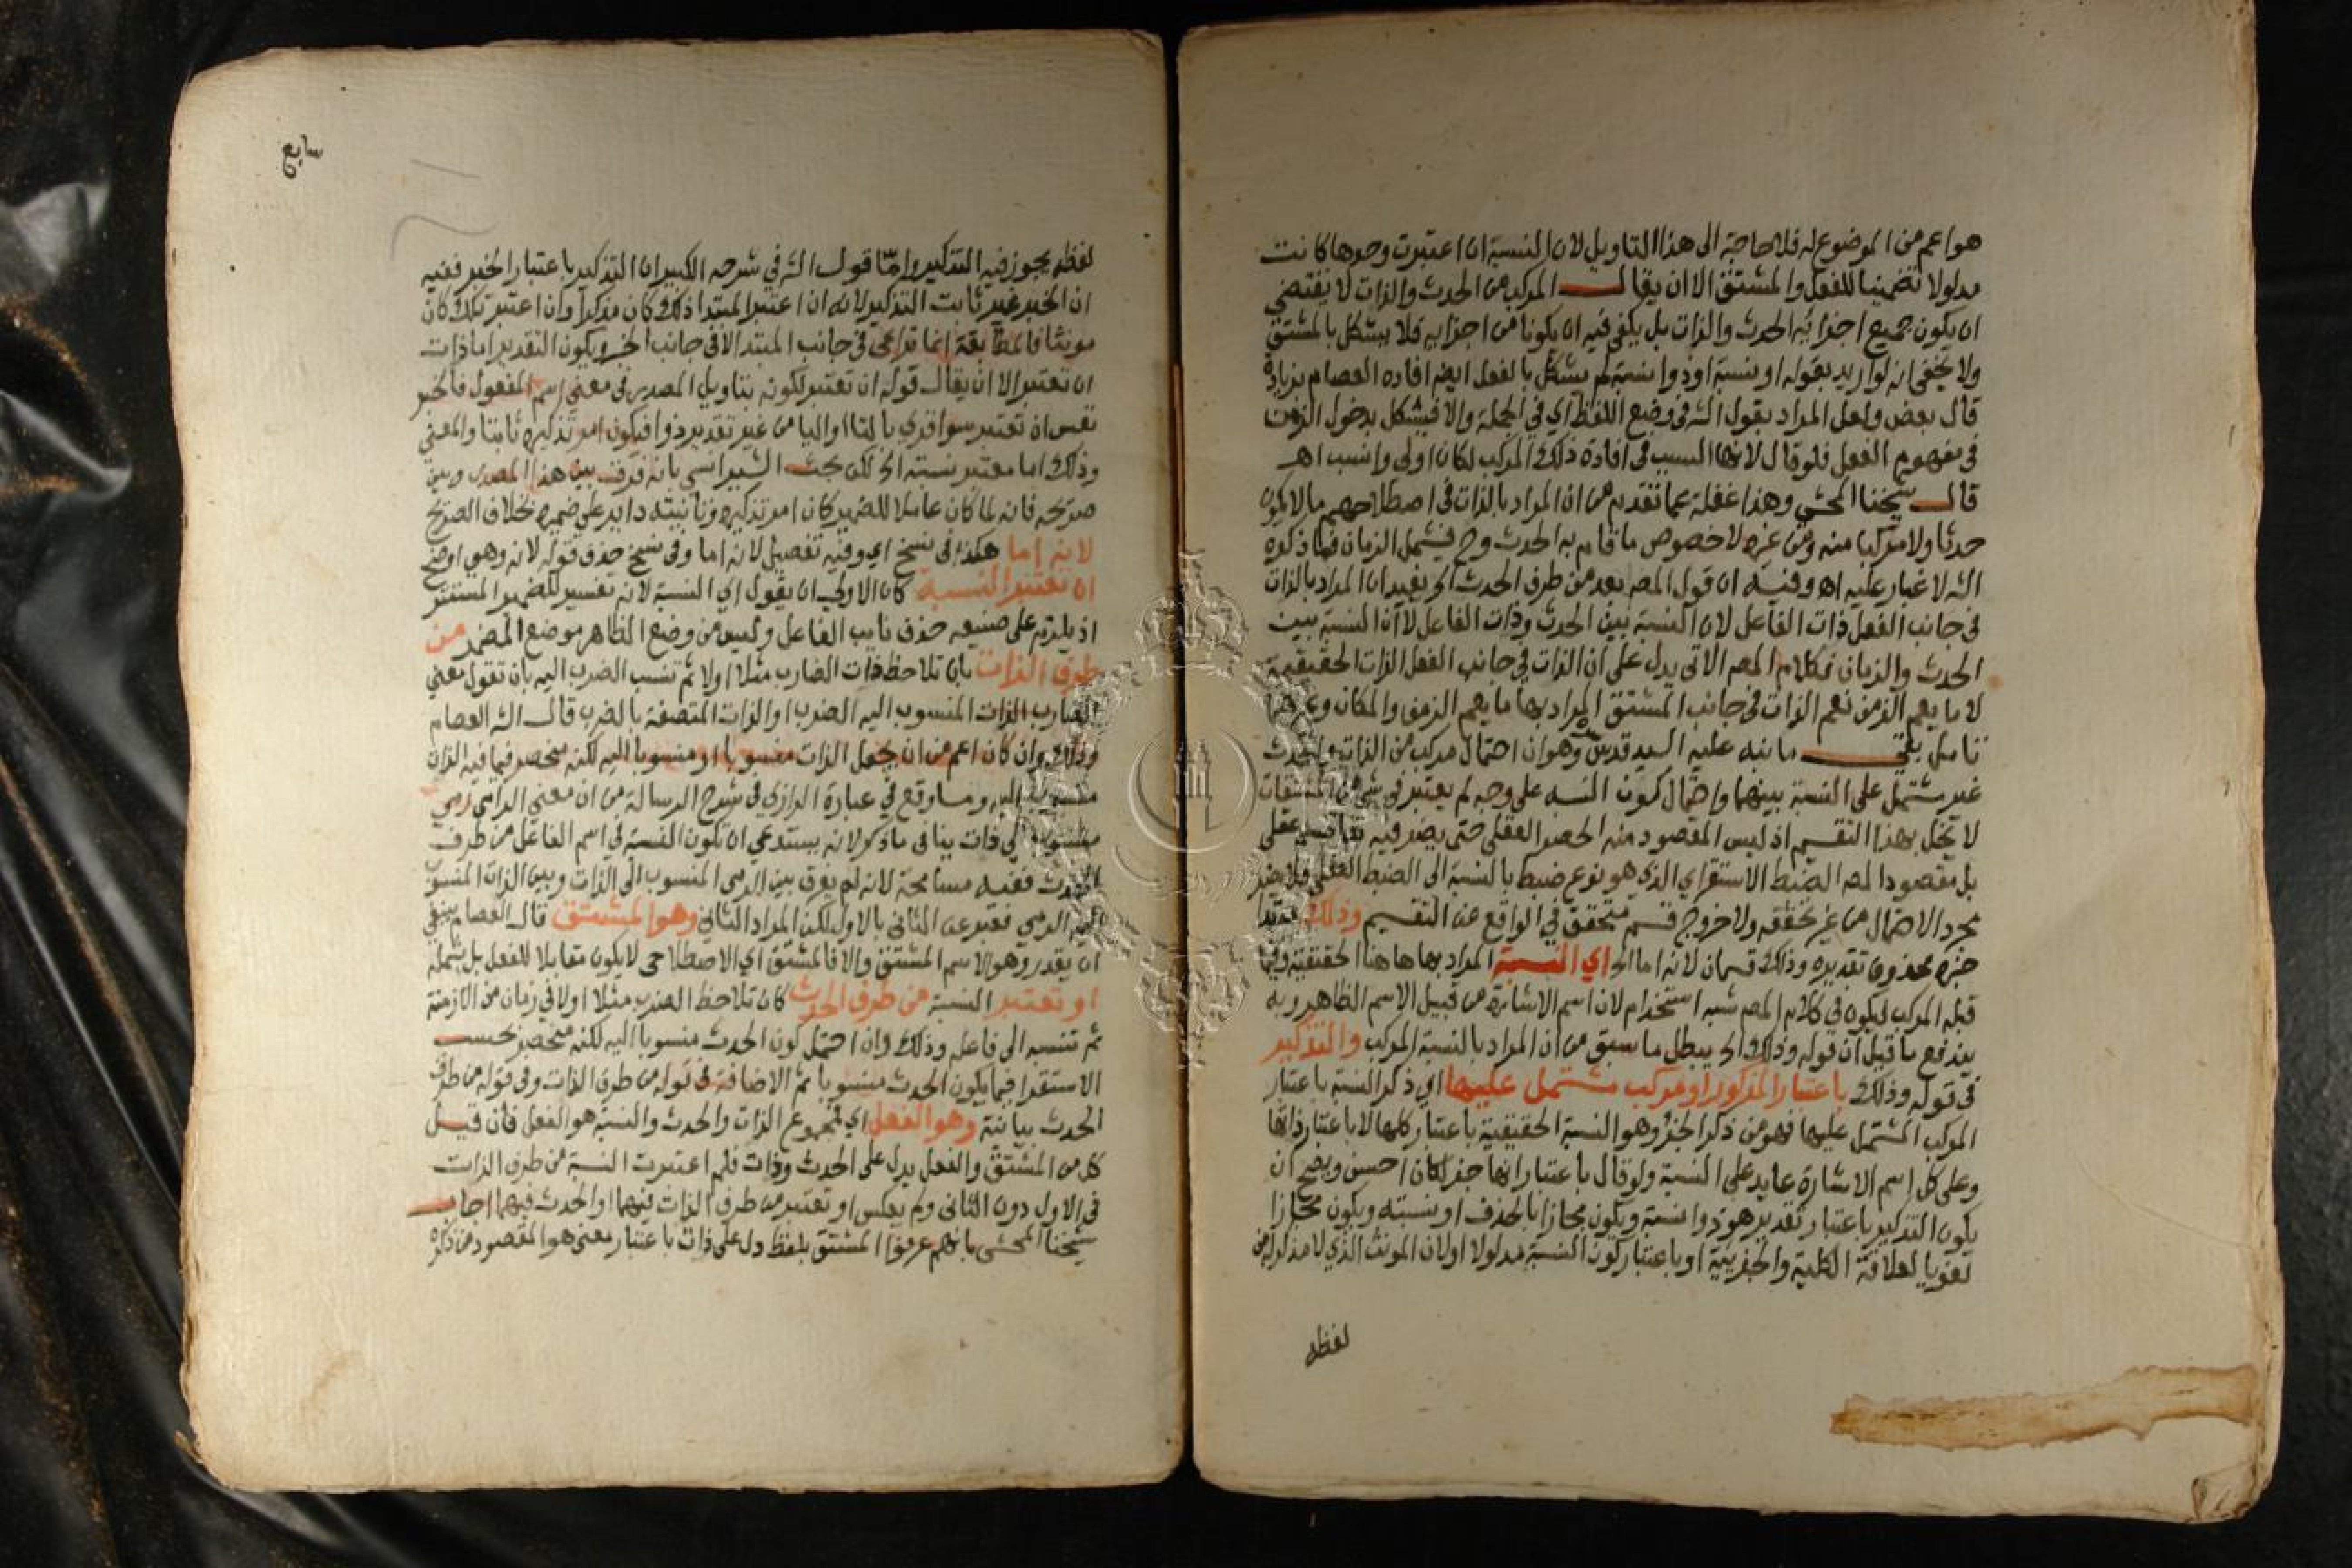 هو اعم من الموضوع له فلا حاجة الى هذا التاويل لان النسبة ان اعتبرت وحدها كانت
مدلولا تضمنيا للفعل والمشتق الا ان يقال المركب من الحدث والذات لا يقتضي
ان يكون جميع اجزائه الحدث والذات بل يكفي فيه ان يكونا من اجزايه فلا يشكل بالمشتق
ولا يخفى انه لو اريد بقوله او نسبة او ذوا نسبة لم يشكل بالفعل ايضا افاده العصام بزيادة
قال بعض ولعل المراد بقول الش في وضع اللفظ اي في الجملة والا فيشكل بدخول الزمن
في مفهوم الفعل فلو قال لانها السبب في افادة ذلك المركب لكان اولى وانسب اهـ
قال شيخنا المحشي وهذا غفلة عما تقدم من ان المراد بالذات في اصطلاحهم ما لا يكون
حدثا ولا مركبا منه ومن غيره لا خصوص ما قام به الحدث وح فيشمل الزمان فما ذكره
الش لا غبار عليه اه وفيه ان قول المص بعد من طرف الحدث الخ يفيد ان المراد بالذات
في جانب الفعل ذات الفاعل لان النسبة بين الحدث وذات الفاعل لا ان النسبة بين
الحدث والزمان فكلام المص الاتي يدل على ان الذات في جانب الفعل الذات الحقيقية
لا ما يعم الزمن نعم الذات في جانب المشتق المراد بها ما يعم الزمن والمكان وغيرهما
تامل بقي ما نبه عليه السيد قدس وهو ان احتمال مركب من الذات والحدث
غير مشتمل على النسبة بينهما واحتمال كون النسبة على وجه لم يعتبر في شي من المشتقات
لا يخل بهذا التقسيم اذ ليس المقصود منه الحصر العقلي حتى يضر فيه عقلي
بل مقصود المص الضبط الاستقراي الذي هو نوع ضبط بالنسبة الى الضبط العقلي فلا يضر
مجرد الاحتمال من غير تحققه ولا خروج قسم متحقق في الواقع عن التقسيم وذلك مبتدا
خبره محذوف تقديره وذلك قسمان لانه اما الخ اي النسبة المراد بها هاهنا الحقيقية وفيما
قبله المركب ليكون في كلام المص شبه استخدام لان اسم الاشارة من قبيل الاسم الظاهر وبه
يندفع ما قيل ان قوله وذلك الخ يبطل ما سبق من ان المراد بالنسبة المركب والتذكير
في قوله وذلك باعتبار المذكور او مركب مشتمل عليها اي ذكر النسبة باعتبار
المركب المشتمل عليها فهو من ذكر الجزؤ وهو النسبة الحقيقية باعتبار كلها لا باعتبار ذاتها
وعلى كل اسم الاشارة عايد على النسبة ولو قال باعتبار انها جزء لكان احسن ويصح ان
يكون التذكير باعتبار تقدير هو ذوا نسبة ويكون مجازا بالحذف او نسبته ويكون مجازا
لغويا لعلاقة الكلية والجزييية او باعتبار كون النسبة مدلولا اولان المونث الذي لا مذكر له من
لفظه
سابع
لفظه يجوز فيه التذكير وامّا قول الش في شرحه الكبير ان التذكير باعتبار الخبر ففيه
ان الخبر غير ثابت التذكير لانه ان اعتبر المبتدا ذلك كان مذكرا وان اعتبر تلك كان
مونثا فالمطابقة انما تراعى في جانب المبتدا لا في جانب الخبر ويكون التقدير اما ذات
ان تعتبر الا ان يقال قوله ان تعتبر لكونه بتاويل المصدر في معنى اسم المفعول فالخبر
نفس ان تعتبر سوا قرئ بالتا او اليا من غير تقدير ذوا فيكون امر تذكيره ثابتا والمعنى
وذلك اما معتبر نسبته الخ لكن بحث الشيرانسي بانه فرق بين هذا المصدر وبين
صريحه فانه لما كان عاملا للضمير كان امر تذكيره وتانيثه داير على ضميره بخلاف الصريح
لانه اما هكذا في نسخ اي وفيه تفصيل لانه اما وفي نسخ حذف قوله لانه وهي اوضح
ان تعتبر النسبة كان الاولى ان يقول اي النسبة لانه تفسير للضمير المستتر
اذ يلزم على صنيعه حذف نايب الفاعل وليس من وضع الظاهر موضع المضمر من
طرف الذات بان تلاحظ ذات الضارب مثلا اولا ثم تنسب الضرب اليه بان تقول معنى
الضارب الذات المنسوب اليه الضرب او الذات المتصفة بالضرب قال الش العصام
وذلك وان كان اعم من ان يجعل الذات منسوبا او منسوبا اليه لكنه منحصر فيما فيه الذات
منسوب اليه وما وقع في عبارة الرازي في شرح الرسالة من ان معنى الرامي رمي
منسوب الى ذات ينافي ما ذكر لانه يستدعي ان تكون النسبة في اسم الفاعل من طرف
الحدث ففيه مسامحة لانه لم يفرق بين الرمي المنسوب الى الذات وبين الذات المنسوب
اليه الرمي فعبر عن الثاني بالاول لكن المراد الثاني وهو المشتق قال العصام ينبغي
ان يقدر وهو الاسم المشتق والا فالمشتق اي الاصطلاحي لا يكون مقابلا للفعل بل يشمله
او تعتبر النسبة من طرف الحدث كان تلاحظ الضرب مثلا اولا في زمان من الازمنة
ثم تنسبه الى فاعله وذلك وان احتمل كون الحدث منسوبا اليه لكنه منحصر بحسب
الاستقرا فيما يكون الحدث منسوبا ثم الاضافة في قوله من طرف الذات وفي قوله من طرف
الحدث بيانية وهو الفعل اي مجموع الذات والحدث والنسبة هو الفعل فان قيل
كل من المشتق والفعل يدل على الحدث وذات فلم اعتبرت النسبة من طرف الذات
في الاول دون الثاني ولم يعكس او تعتبر من طرف الذات فيهما او الحدث فيهما اجاب
شيخنا المحشي بانهم عرفوا المشتق بلفظ دل على ذات باعتبار معنى هو المقصود من ذكره